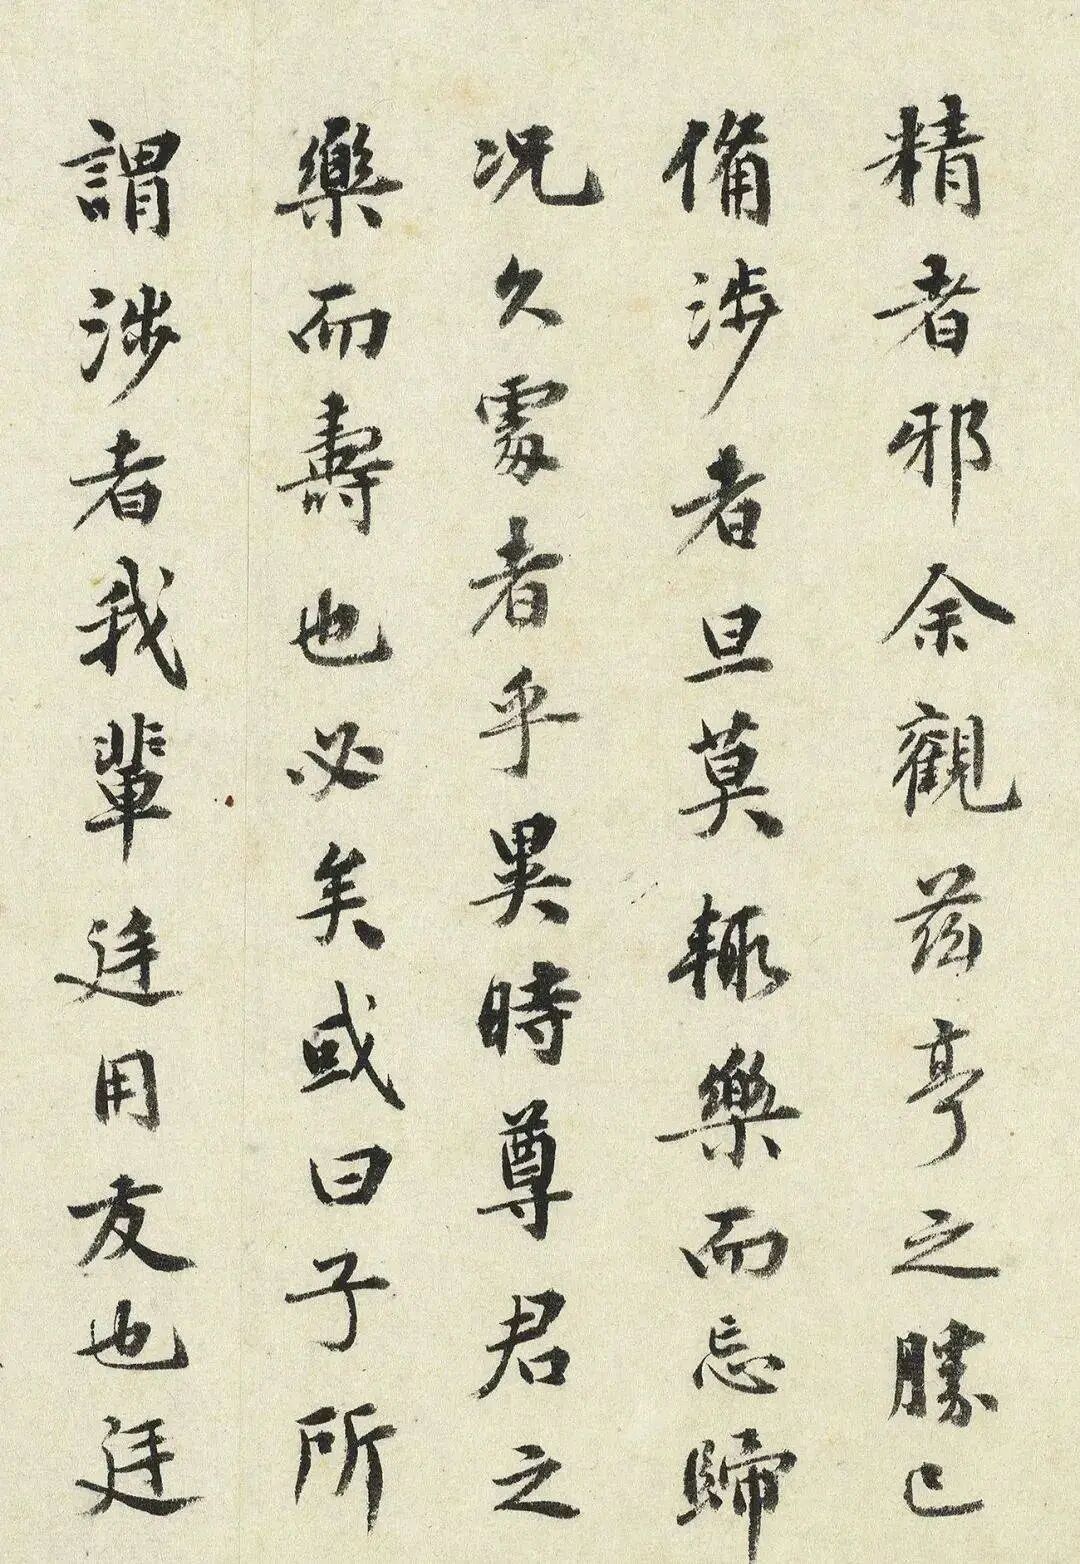 精者邪余觀茲亭之勝已
備涉者旦莫輒樂而忘歸
况久處者乎異時尊君之
樂而壽也必矣或曰子所
謂涉者我輩廷用友也廷